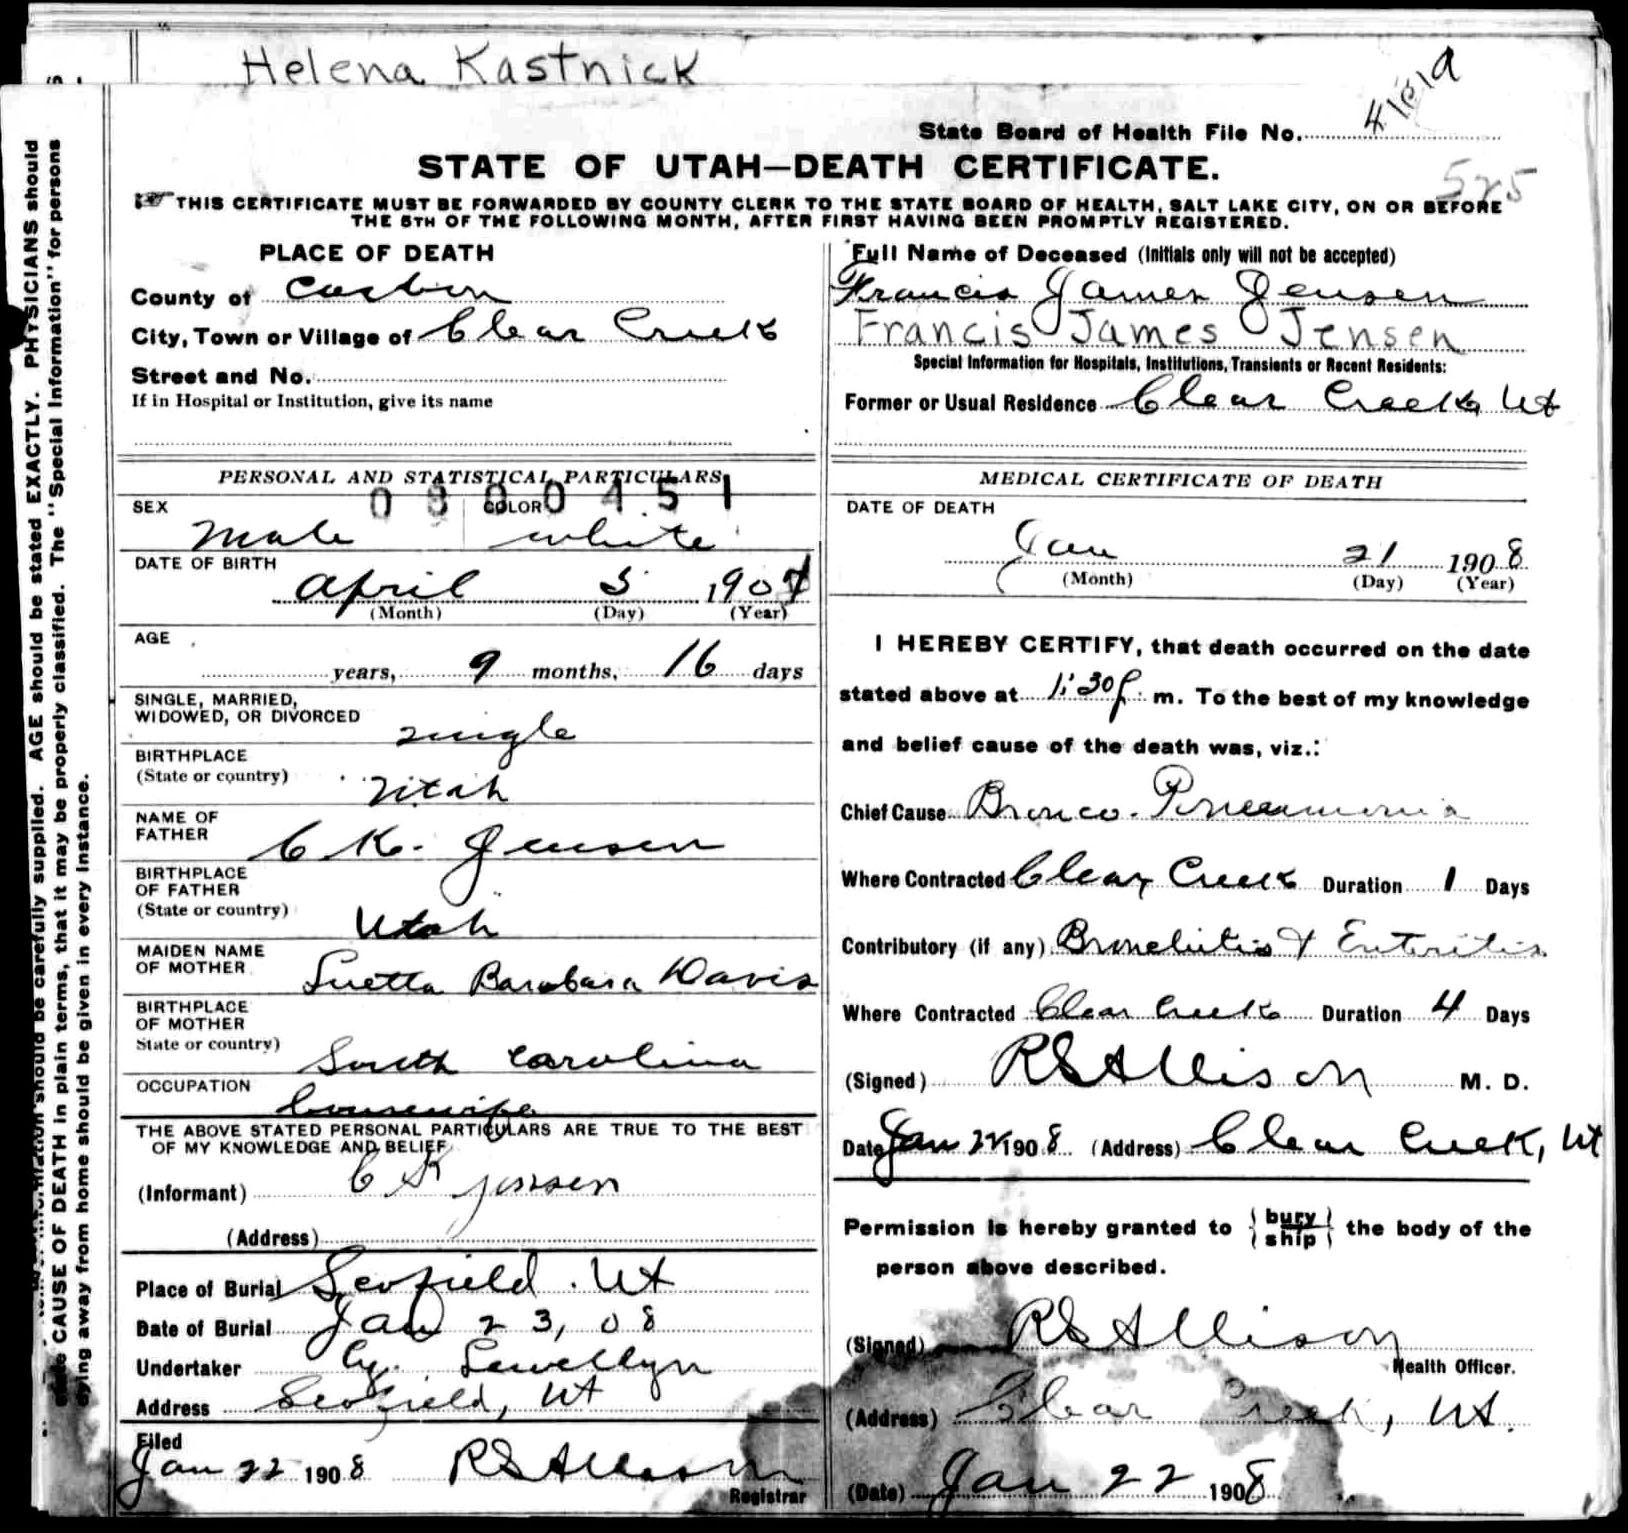 Helena Kastnick
State Board of Health File No.
525
STATE OF UTAH—DEATH CERTIFICATE.
THIS CERTIFICATE MUST BE FORWARDED BY COUNTY CLERK TO THE STATE BOARD OF HEALTH, SALT LAKE CITY, ON OR BEFORE
THE 5TH OF THE FOLLOWING MONTH, AFTER FIRST HAVING BEEN PROMPTLY REGISTERED.
PLACE OF DEATH
County of Carbon
City, Town or Village of Clear Creek
Street and No.
If in Hospital or Institution, give its name
PERSONAL AND STATISTICAL PARTICULARS
0800451
SEX COLOR
Male white
DATE OF BIRTH
April 5 1907
(Month) (Day) (Year)
AGE
years, 9 months, 16 days
SINGLE, MARRIED,
WIDOWED, OR DIVORCED
single
BIRTHPLACE
(State or country)
Utah
NAME OF
FATHER
C K. Jensen
BIRTHPLACE
OF FATHER
(State or country)
Utah
MAIDEN NAME
OF MOTHER
Luetta Barabara Davis
BIRTHPLACE
OF MOTHER
State or country)
South Carolina
OCCUPATION
housewife
THE ABOVE STATED PERSONAL PARTICULARS ARE TRUE TO THE BEST
OF MY KNOWLEDGE AND BELIEF
(Informant) C K Jensen
(Address)
Place of Burial Scofield. Ut
Date of Burial Jan 23, 08
Undertaker Lewellyn
Address Scofield, Ut
Filed
Jan 22 1908 RS Allison
Registrar
Full Name of Deceased (Initials only will not be accepted)
Francis James Jensen
Francis James Jensen
Special Information for Hospitals, Institutions, Transients or Recent Residents:
Former or Usual Residence Clear Creek, Ut
MEDICAL CERTIFICATE OF DEATH
DATE OF DEATH
Jan 21 1908
(Month) (Day) (Year)
I HEREBY CERTIFY, that death occurred on the date
stated above at 1:30 p. m. To the best of my knowledge
and belief cause of the death was, viz.:
Chief Cause Bronco-Pneumonia
Where Contracted Clear Creek Duration 1 Days
Contributory (if any) Bronchitis & Enteritis
Where Contracted Clear Creek Duration 4 Days
(Signed) RS Allison M. D.
Date Jan 22 1908 (Address) Clear Creek, Ut
Permission is hereby granted to {bury ship} the body of the
person above described.
(Signed) RS Allison
Health Officer.
(Address) Clear Creek, Ut.
(Date) Jan 22 1908
PHYSICIANS should
AGE should be stated EXACTLY.
should be carefully supplied.
CAUSE OF DEATH in plain terms, that it may be properly classified. The "Special Information" for persons
dying away from home should be given in every instance.